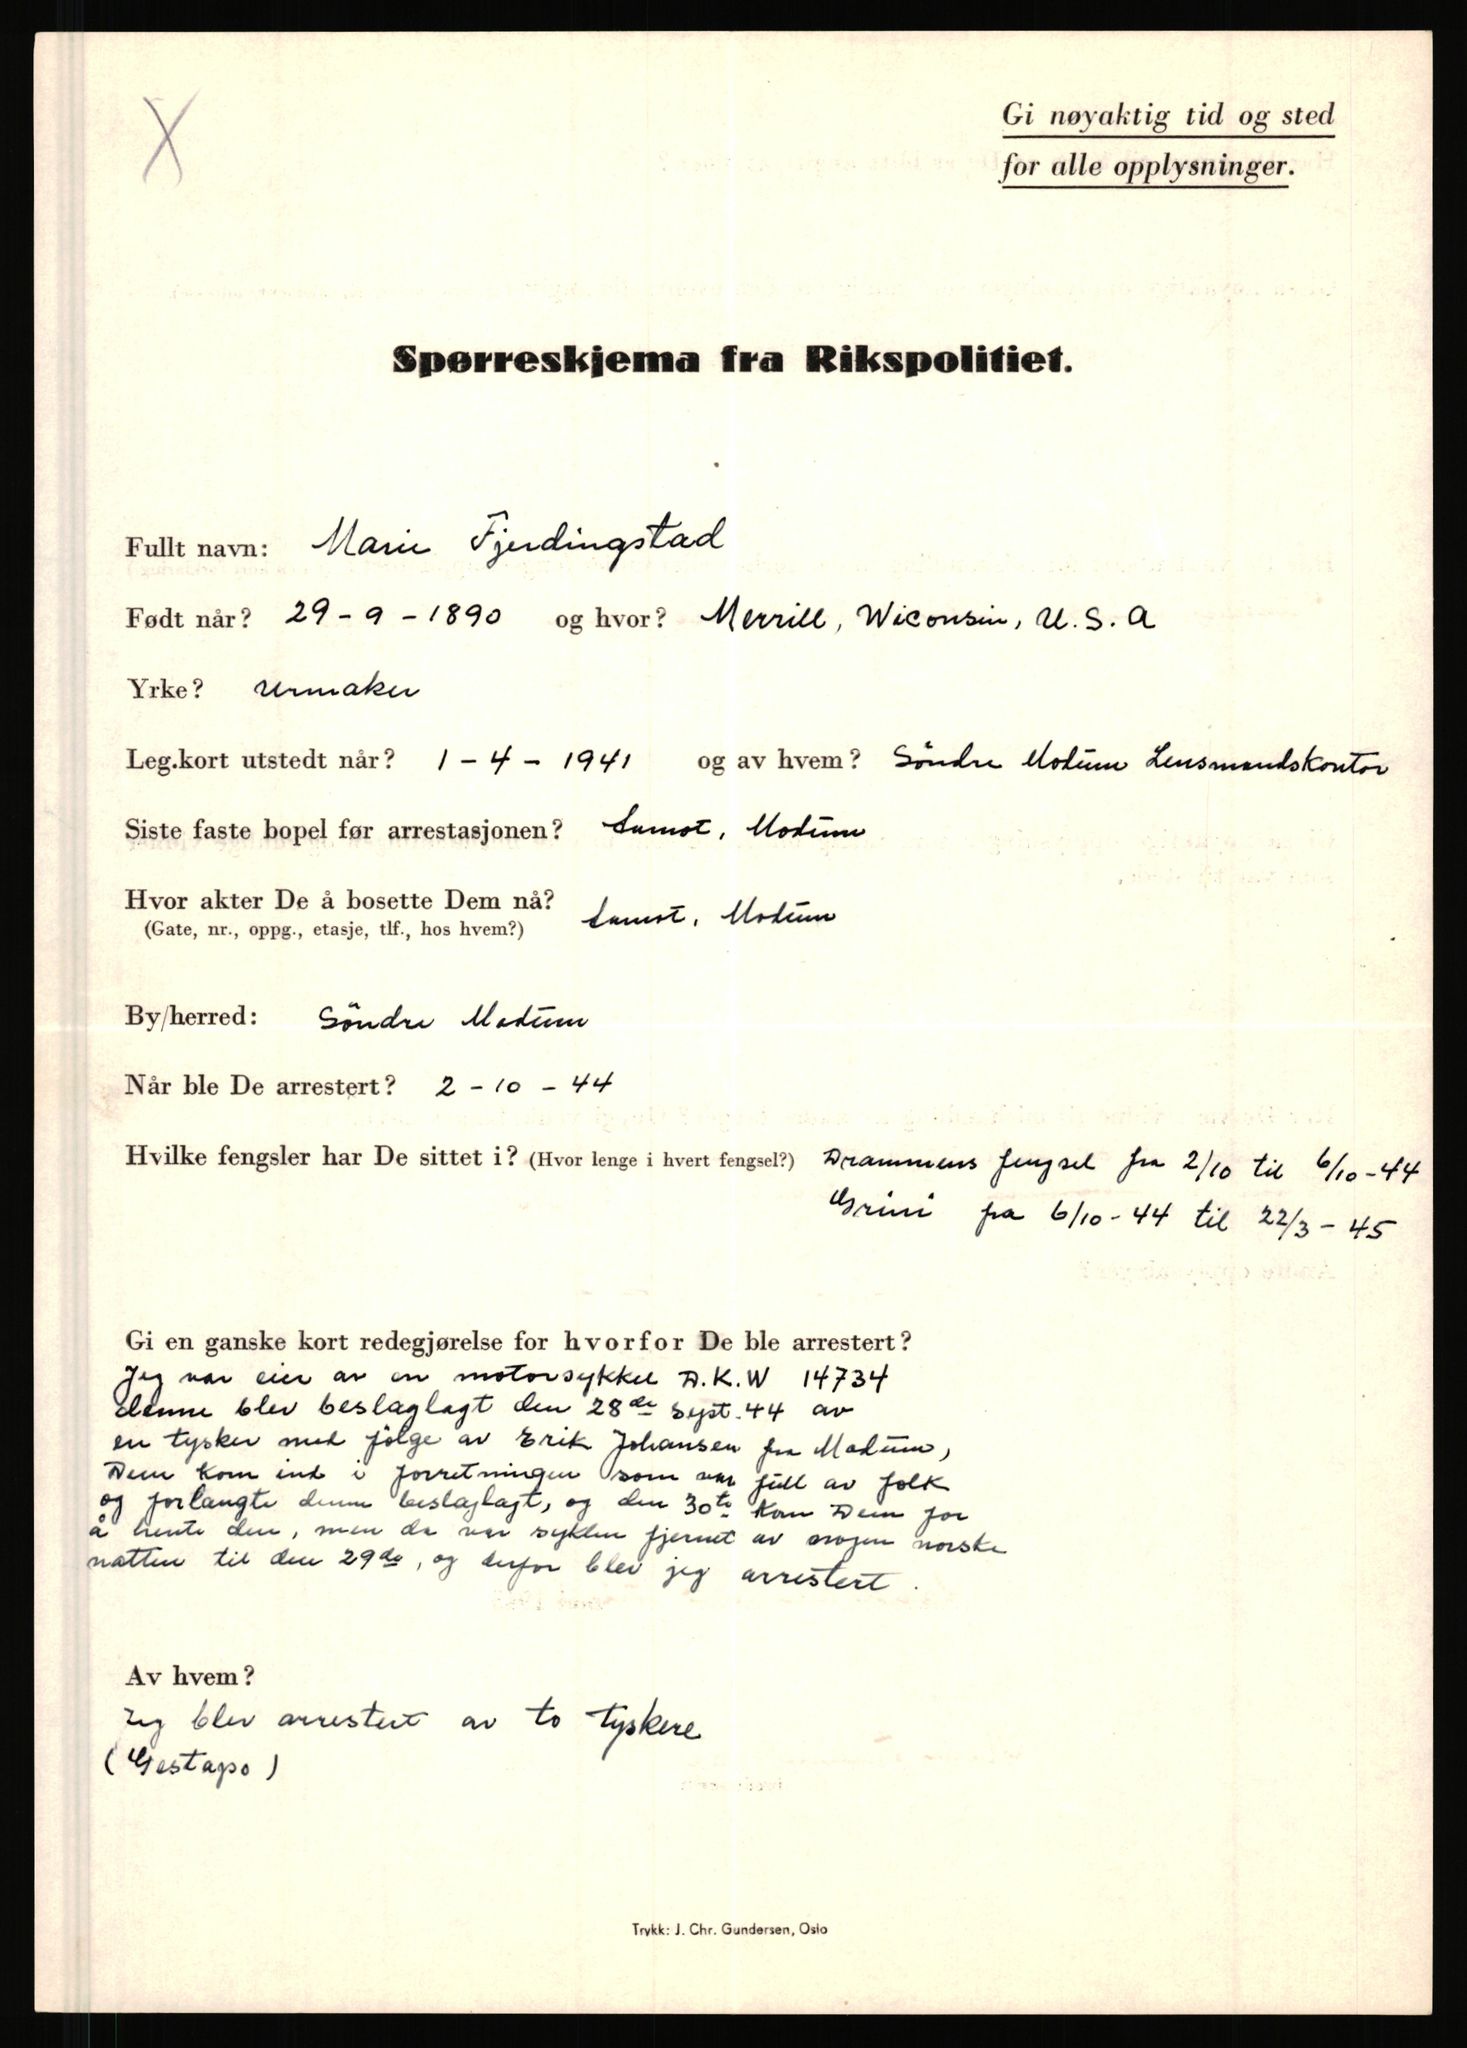 Gi nøyaktig tid og sted
for alle opplysninger.
Spørreskjema fra Rikspolitiet.
Fullt navn: Marie Fjerdingstad
Født når? 29-9-1890 og hvor? Merrill, Wiconsin, U.S.A
Yrke? Urmaker
Leg.kort utstedt når? 1-4-1941 og av hvem? Söndre Modum Lensmandskontor
Siste faste bopel før arrestasjonen? Åmot, Modum
Hvor akter De å bosette Dem nå? Åmot, Modum
(Gate, nr., oppg., etasje, tlf., hos hvem?)
By/herred: Söndre Modum
Når ble De arrestert? 2-10-44
Hvilke fengsler har De sittet i? (Hvor lenge i hvert fengsel?) Drammens fengsel fra 2/10 til 6/10-44
Grini fra 6/10-44 til 22/3-45
Gi en ganske kort redegjørelse for hvorfor De ble arrestert?
Jeg var eier av en motorsykkel D.K.W 14734
denne blev beslaglagt den 28de Sept. 44 av
en tysker med fölge av Erik Johansen fra Modum,
Dem kom ind i forretningen som var full av folk
og forlangte denne beslaglagt, og den 30te kom Dem for
å hente den, men da var syklen fjernet av nogen norske
natten til den 29de, og derfor blev jeg arrestert.
Av hvem?
Jeg blev arrestert av to tyskere
(Gestapo)
Trykk: J. Chr. Gundersen, Oslo